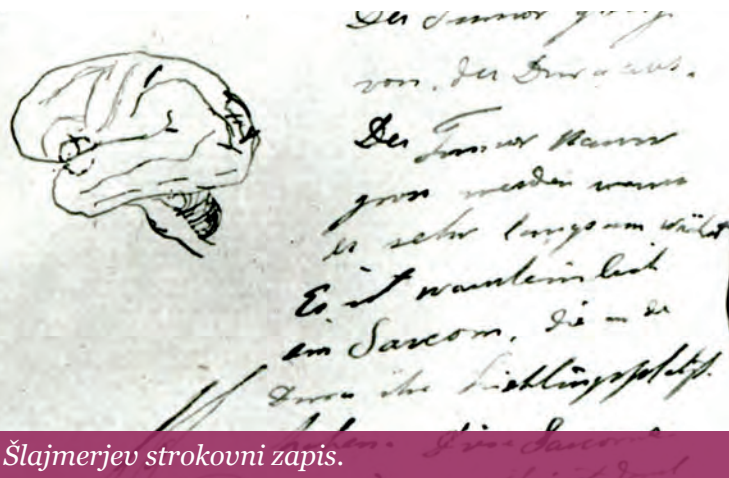 Der Tumor
von der Dura aus.
Der Tumor kann
gross werden wenn
er sehr langsam wächst
Es ist wahrscheinlich
ein Sarcom, die in der
Dura ihr Lieblingsplatz
haben. Diese Sarcome
Šlajmerjev strokovni zapis.